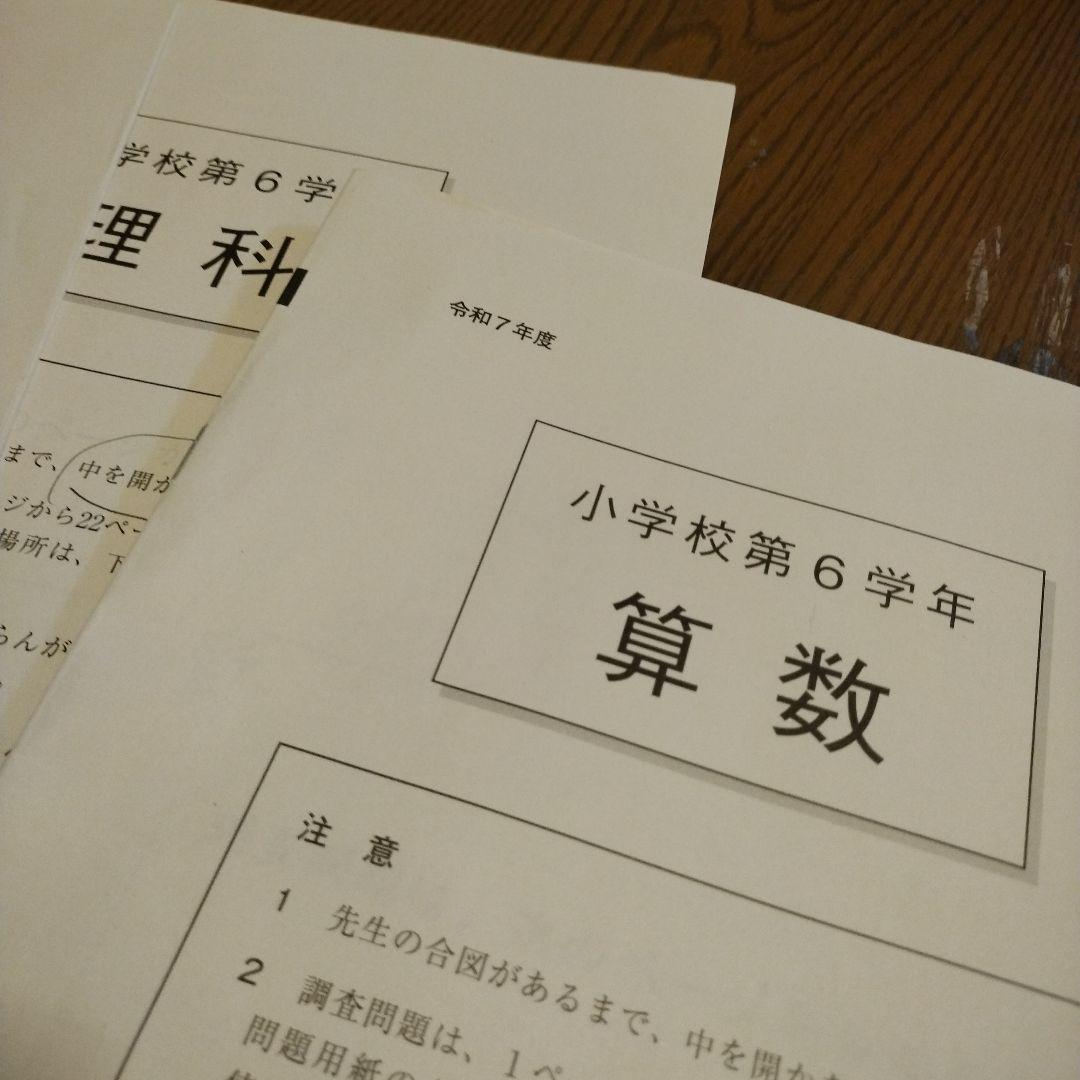 学校第6学
理科
まで、中を開か
ジから22ペー
場所は、下
らんが
令和7年度
小学校第6学年
算数
注意
1 先生の合図があるまで、中を開か
2 調査問題は、1ペ
問題用紙の